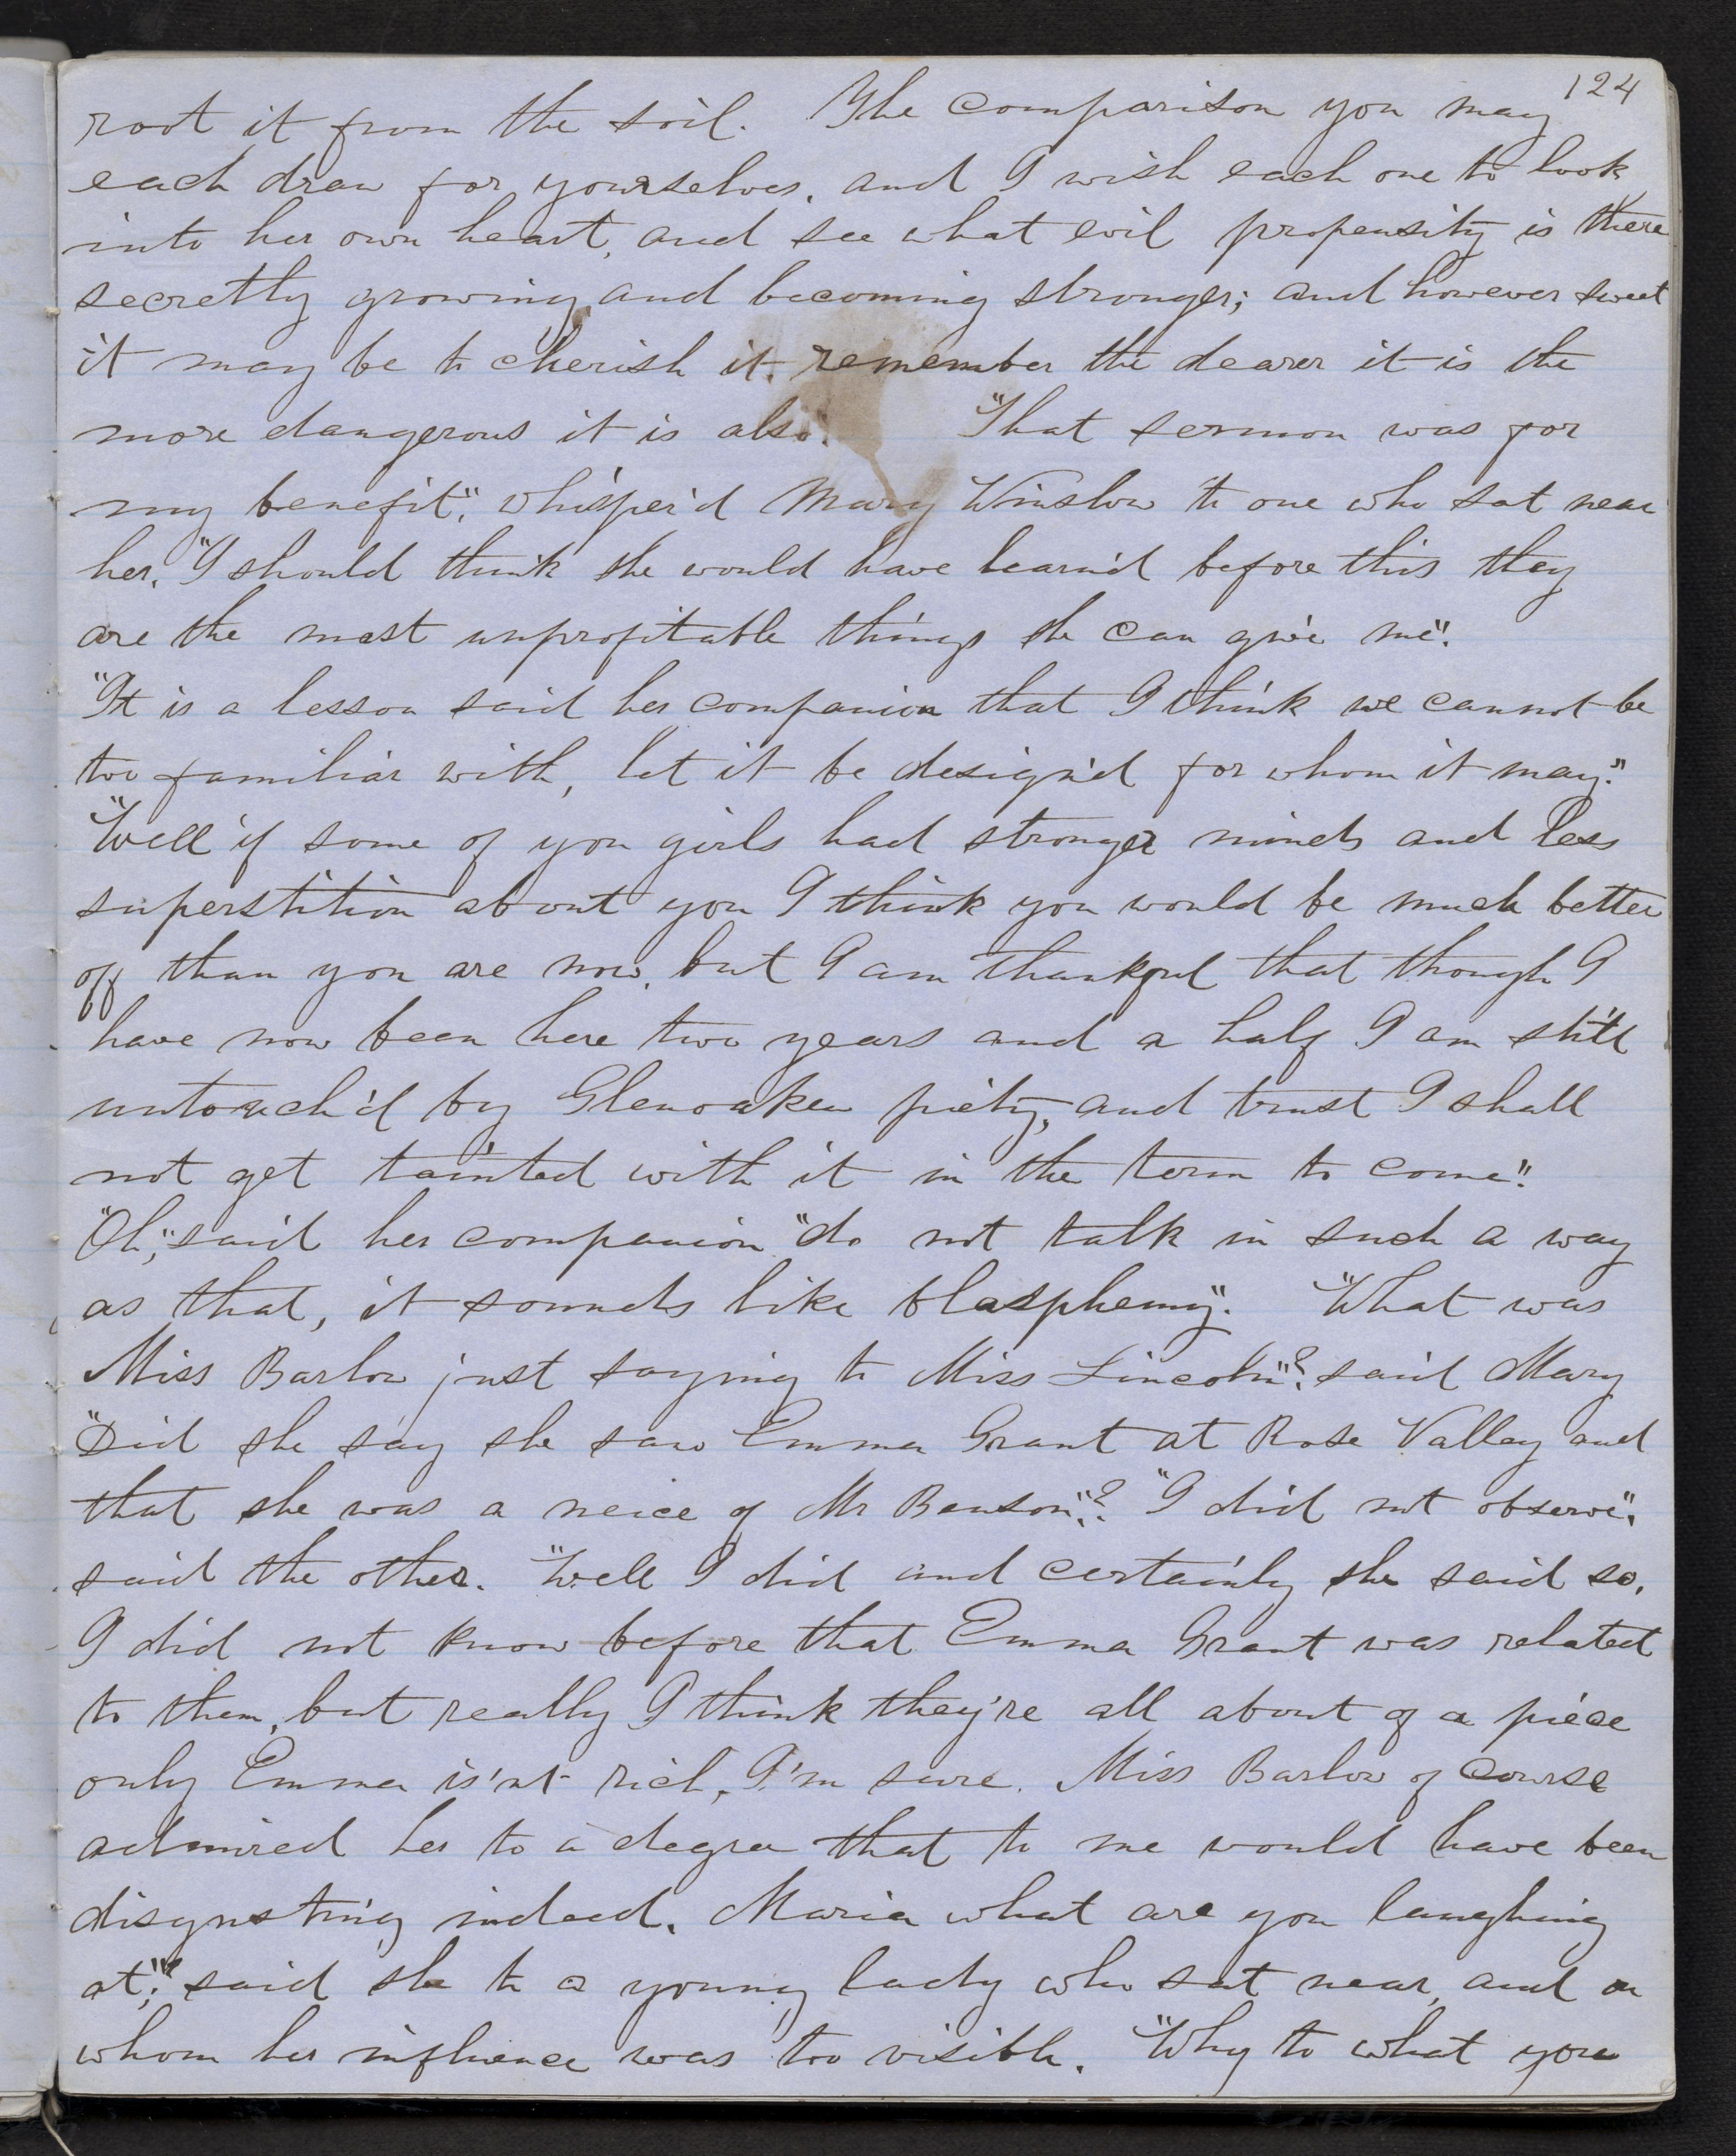 124
root it from the soil. The comparison you may
each draw for yourselves, and I wish each one to look
into her own heart, and see what evil propensity is there
secretly growing and becoming stronger; and however sweet
it may be to cherish it, remember the dearer it is the
more dangerous it is also." "That sermon was for
my benefit", whisper'd Mary Winslow to one who sat near
her. "I should think she would have learn'd before this they
are the most unprofitable things she can give me".
"It is a lesson said her companion that I think we cannot be
too familiar with, let it be design'd for whom it may."
"Well if some of you girls had stronger minds and less
superstition about you I think you would be much better
off than you are now, but I am thankful that though I
have now been here two years and a half I am still
untouch'd by Glenoaken piety, and trust I shall
not get tainted with it in the term to come".
"Oh", said her companion "do not talk in such a way
as that, it sounds like blasphemy". "What was
Miss Barlow just saying to Miss Lincoln"? said Mary
"Did she say she saw Emma Grant at Rose Valley and
that she was a neice of Mr Benson"? "I did not observe",
said the other. "Well I did and certainly she said so.
I did not know before that Emma Grant was related
to them, but really I think they're all about of a piece
only Emma is'nt rich, I'm sure. Miss Barlow of course
admired her to a degree that to me would have been
disgusting indeed. Maria what are you laughing
at"? said she to a young lady who sat near, and on
whom her influence was too visible. "Why to what you